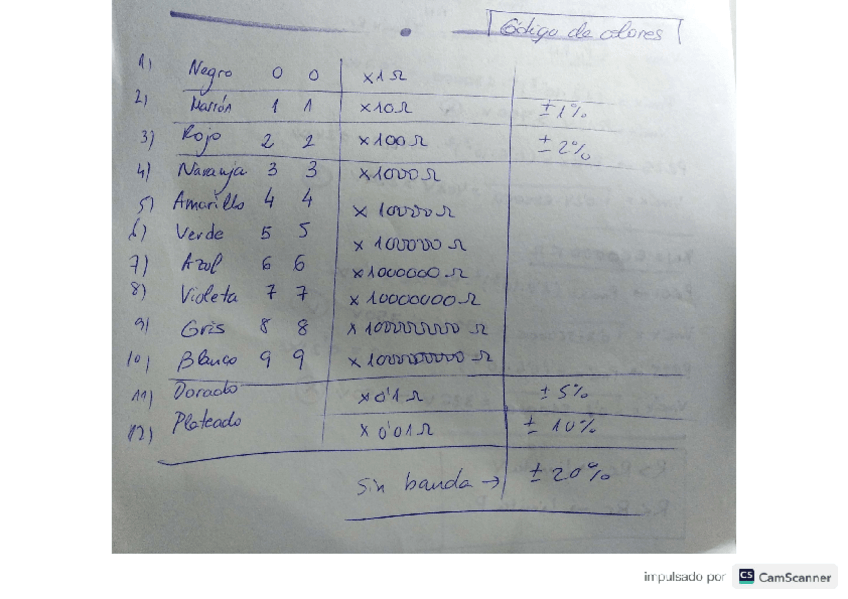 Código de colores
1) Negro 0 0 x1Ω
2) Marrón 1 1 x10Ω ±1%
3) Rojo 2 2 x100Ω ±2%
4) Naranja 3 3 x1000Ω
5) Amarillo 4 4 x10000Ω
6) Verde 5 5 x100000Ω
7) Azul 6 6 x1000000Ω
8) Violeta 7 7 x10000000Ω
9) Gris 8 8 x100000000Ω
10) Blanco 9 9 x1000000000Ω
11) Dorado x0'1Ω ±5%
12) Plateado x0'01Ω ±10%
sin banda → ±20%
impulsado por CS CamScanner